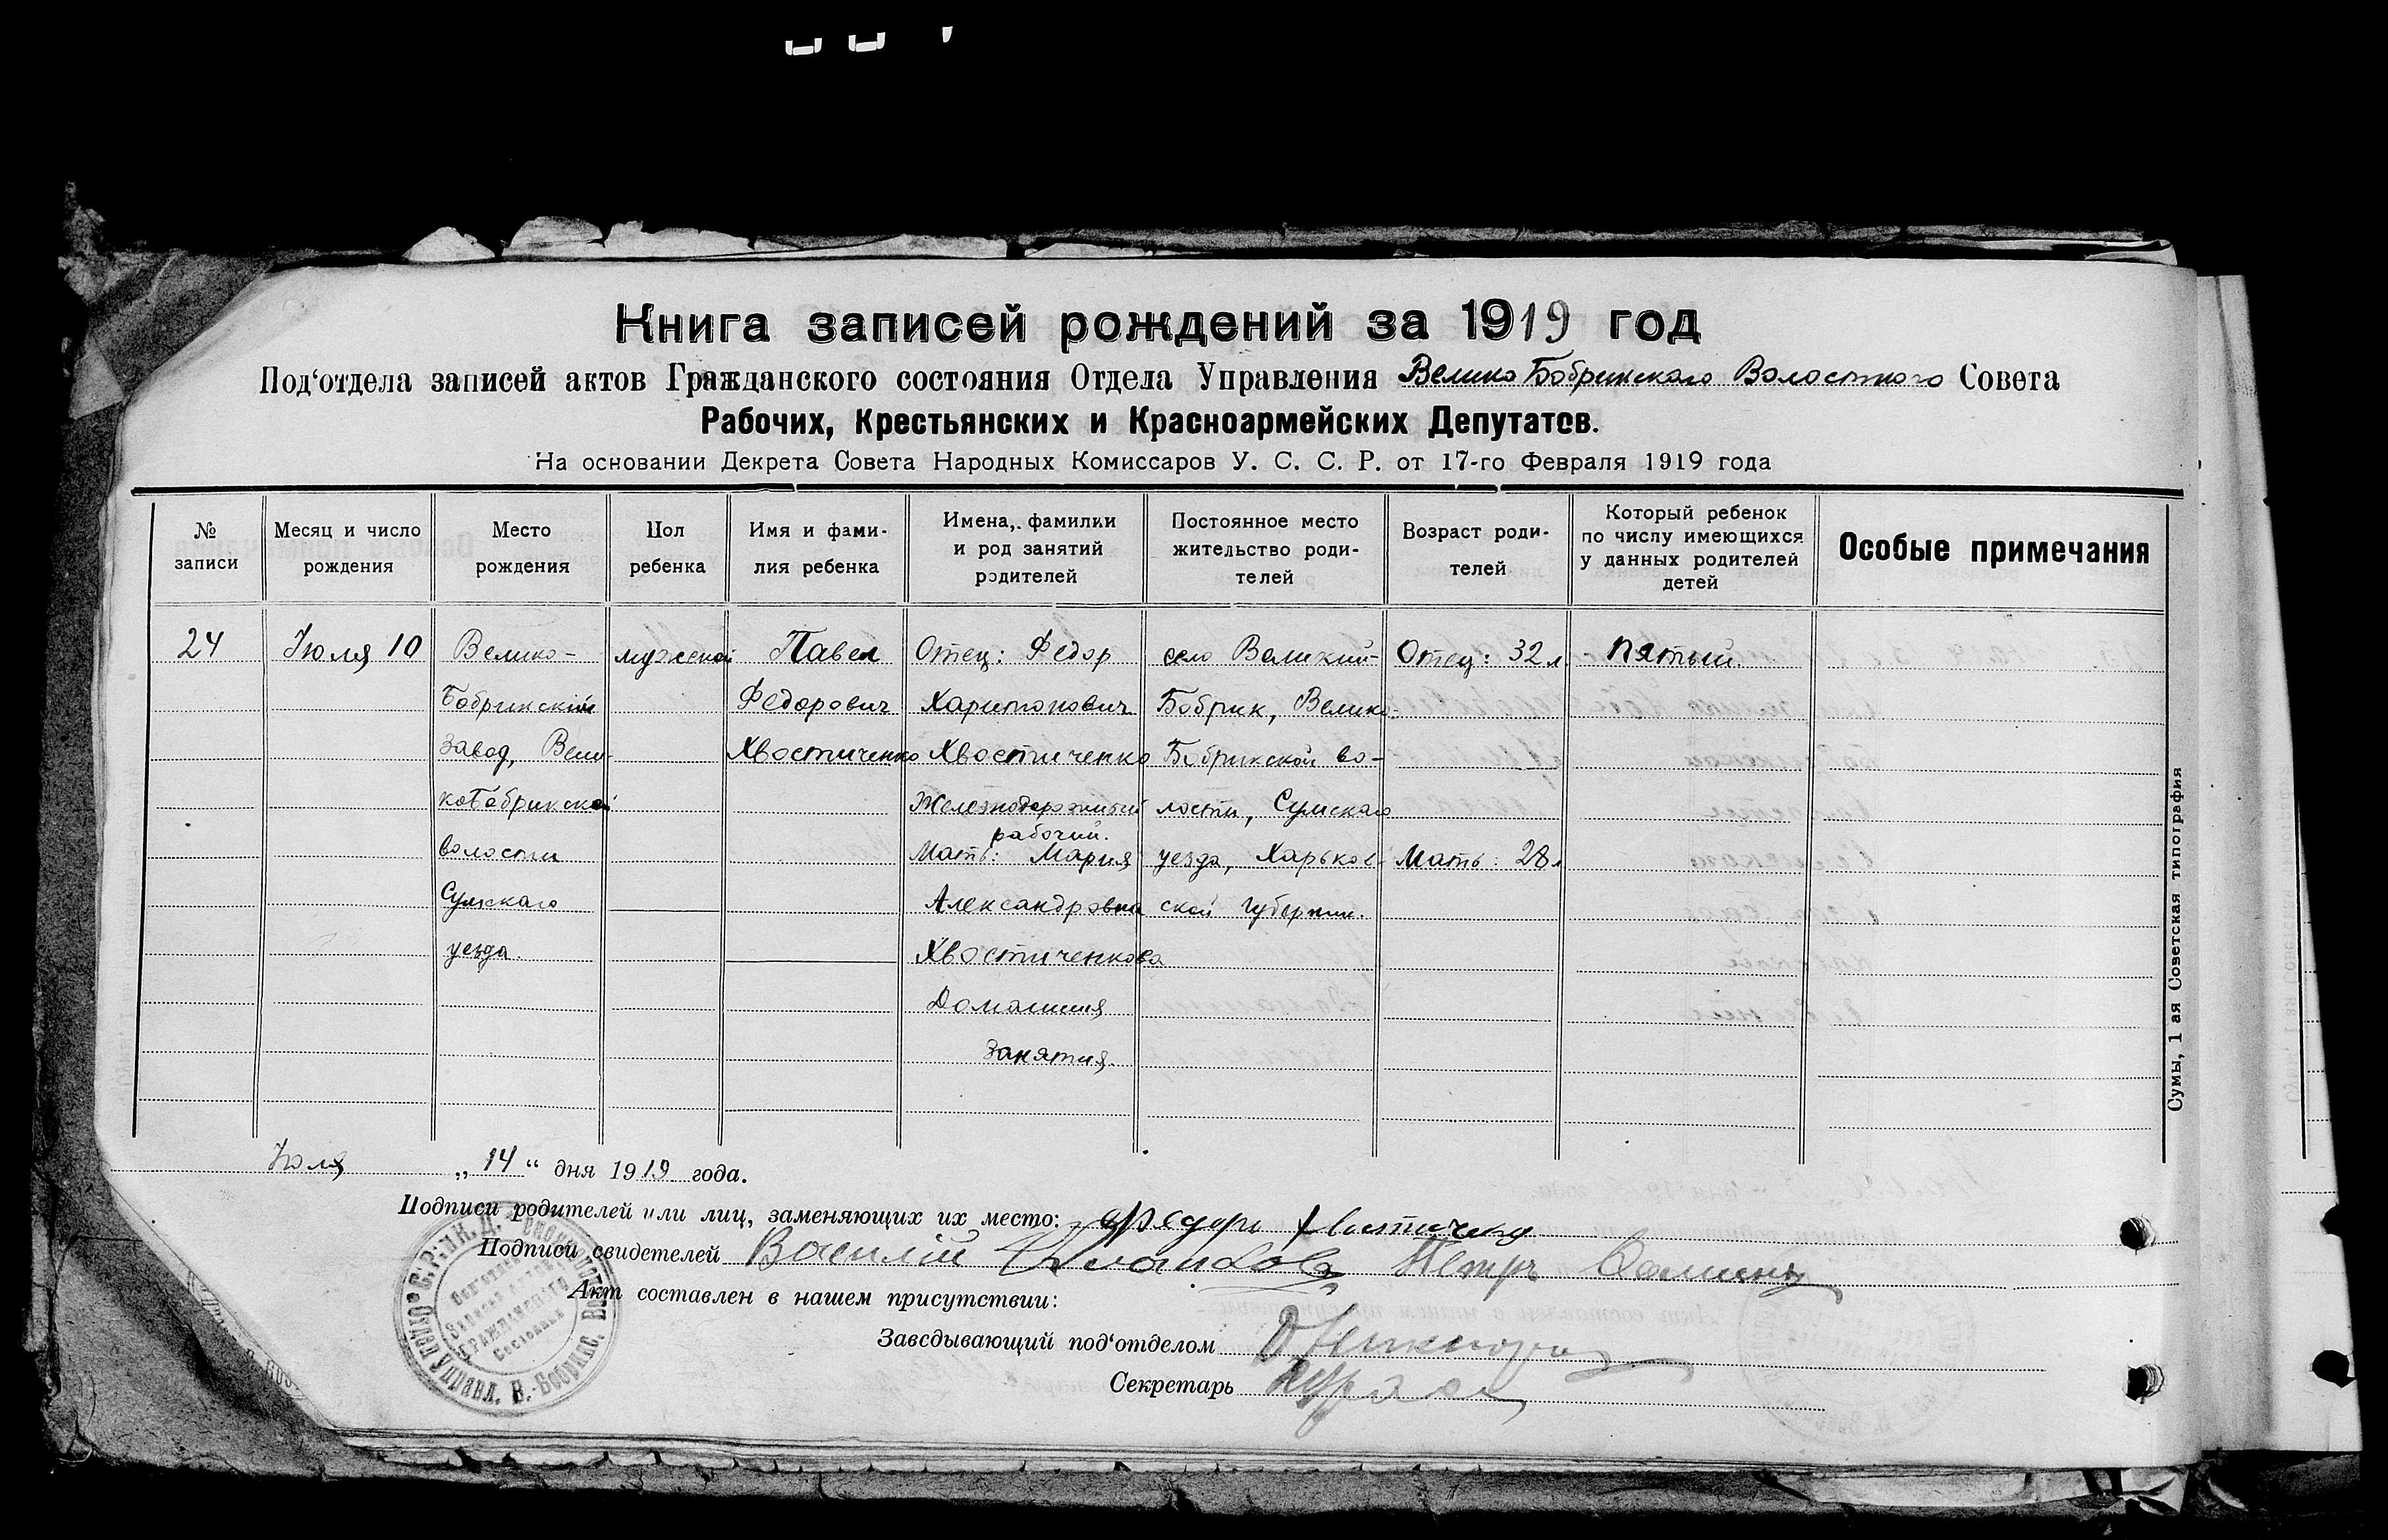 Книга записей рождений за 1919 год
Под‘отдела записей актов Гражданского состояния Отдела Управления Велико Бобрикского Волостного Совета
Рабочих, Крестьянских и Красноармейских Депутатов.
На основании Декрета Совета Народных Комиссаров У. С. С. Р. от 17-го Февраля 1919 года
№ записи
Месяц и число рождения
Место рождения
Пол ребенка
Имя и фами-
лия ребенка
Имена, фамилии
и род занятий
родителей
Постоянное место
жительство роди-
телей
Возраст роди-
телей
Который ребенок
по числу имеющихся
у данных родителей
детей
Особые примечания
24
Июля 10
Велико-
Бобрикский
завод, Вели-
коБобрикской
волости
Сумскаго
уезда.
мужской
Павел
Федорович
Хвостиченко
Отец: Федор
Харитонович
Хвостиченко
Железнодорожный
рабочий.
Мать: Мария
Александровна
Хвостиченкова
Домашния
занятия.
село Великий-
Бобрик, Велико-
Бобрикской во-
лости, Сумскаго
уезда, Харьков-
ской губернии.
Отец: 32 л
Мать: 28 л
Пятый.
Сумы, 1 ая Советская типография
Июля „14“ дня 1919 года.
Подписи родителей или лиц, заменяющих их место: Федоръ Хвостиченко
Подписи свидетелей Василий Петръ
Акт составлен в нашем присутствии:
Заведывающий под‘отделом
Секретарь
Отдел Управл. В.-Бобрикс.
Записи
Гражданского
Состояния